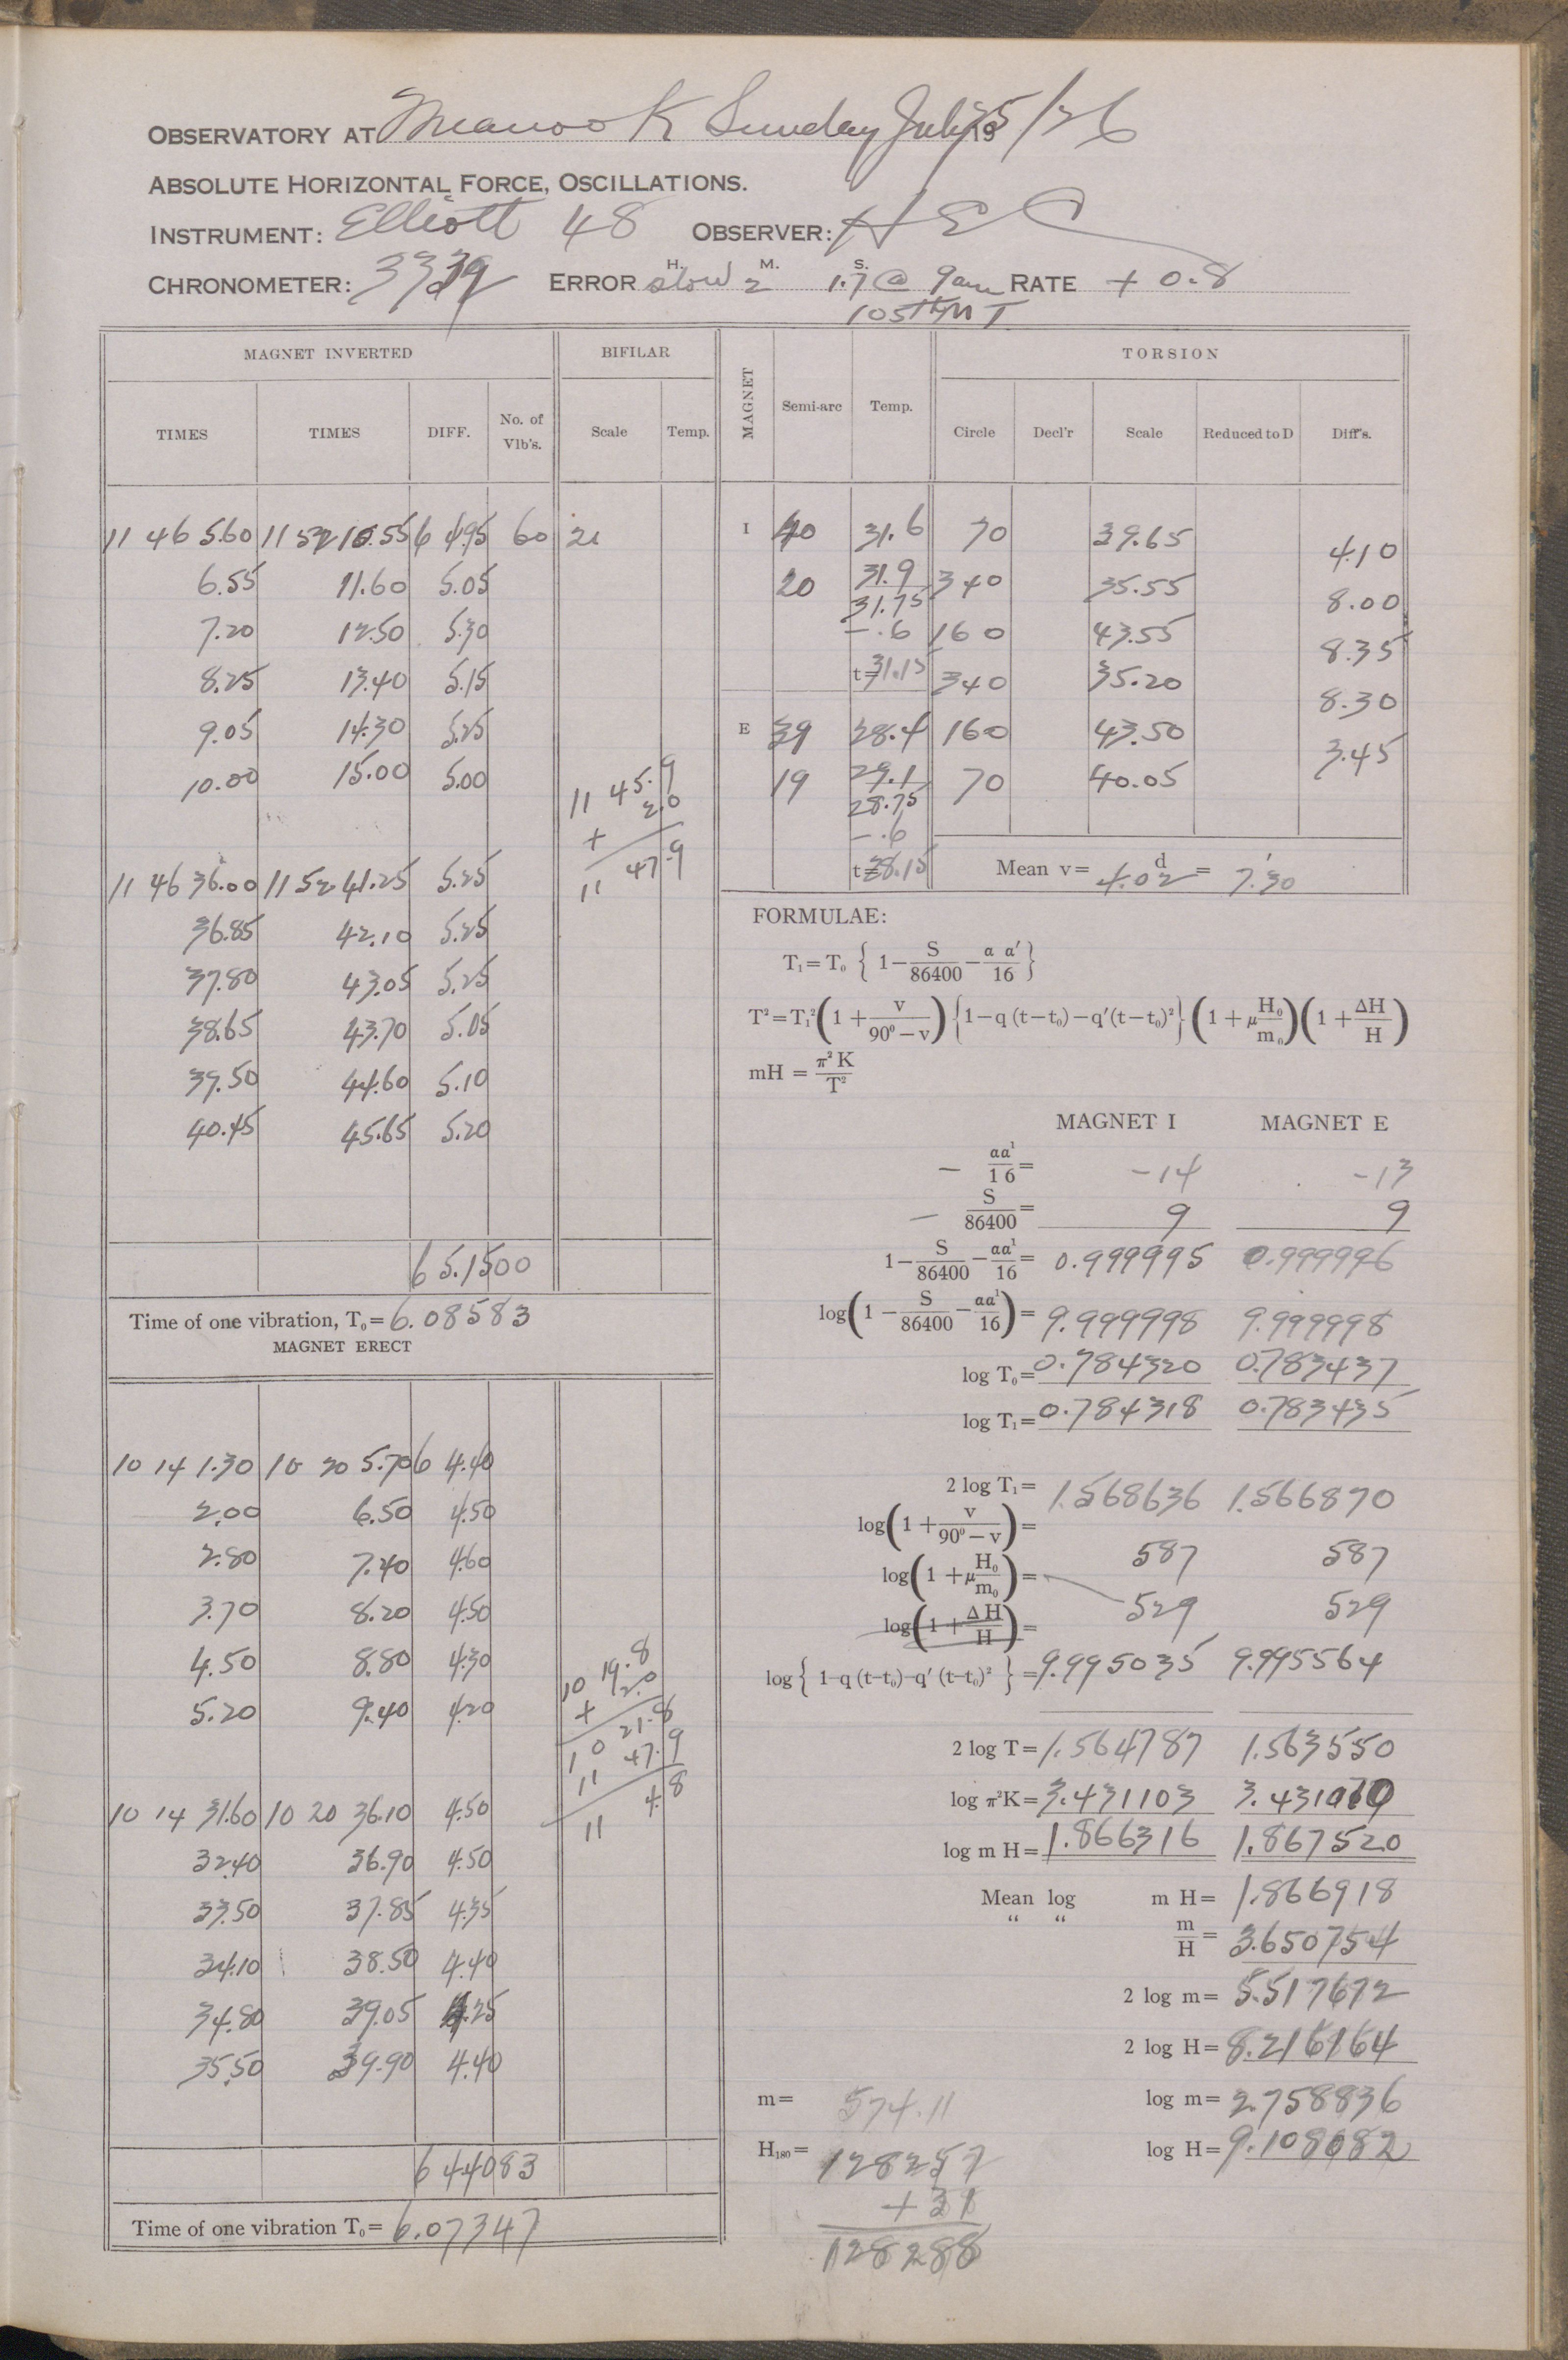 OBSERVATORY AT Meanook Sunday July 25/26 19
ABSOLUTE HORIZONTAL FORCE, OSCILLATIONS.
INSTRUMENT: Elliott 48 OBSERVER: H E C
CHRONOMETER: 3339 ERROR slow H. 2 M. 1.7 S. @ 9am RATE + 0.8
105th M T
MAGNET INVERTED BIFILAR
TIMES TIMES DIFF. No. of Vib's. Scale Temp.
11 46 5.60 11 52 10.55 6 4.95 60 21
6.55 11.60 5.05
7.20 12.50 5.30
8.25 13.40 5.15
9.05 14.30 5.25
10.00 15.00 5.00
11 45.9
+ 2.0
11 47.9
11 46 36.00 11 52 41.25 5.25
36.85 42.10 5.25
37.80 43.05 5.25
38.65 43.70 5.05
39.50 44.60 5.10
40.45 45.65 5.20
6 5.1500
Time of one vibration, T₀= 6.08583
MAGNET ERECT
10 14 1.30 10 20 5.70 6 4.40
2.00 6.50 4.50
2.80 7.40 4.60
3.70 8.20 4.50
4.50 8.80 4.30
5.20 9.40 4.20
10 19.8
+ 2.0
10 21.8
11 47.9
11 4.8
10 14 31.60 10 20 36.10 4.50
32.40 36.90 4.50
33.50 37.85 4.35
34.10 38.50 4.40
34.80 39.05 4.25
35.50 39.90 4.40
6 44083
Time of one vibration T₀= 6.07347
MAGNET Semi-arc Temp. TORSION
Circle Decl'r Scale Reduced to D Diff's.
I 40 31.6 70 39.65
4.10
20 31.9 340 35.55
31.75 8.00
-.6 160 43.55
8.35
t=31.15 340 35.20
8.30
E 39 28.4 160 43.50
3.45
19 29.1 70 40.05
28.75
-.6
t=28.15 Mean v= 4.02 d = 7.30 '
FORMULAE:
T₁=T₀ { 1−S/86400−a a′/16 }
T²=T₁²(1+v/90°−v){1−q (t−t₀)−q′(t−t₀)²}(1+μH₀/m₀)(1+ΔH/H)
mH = π²K/T²
MAGNET I MAGNET E
− aa¹/16= -14 -13
− S/86400= 9 9
1−S/86400−aa¹/16= 0.999995 0.999996
log(1−S/86400−aa¹/16)= 9.999998 9.999998
log T₀= 0.784320 0.783437
log T₁= 0.784318 0.783435
2 log T₁= 1.568636 1.566870
log(1+v/90°−v)= 587 587
log(1+μH₀/m₀)= 529 529
log(1+ΔH/H)=
log{ 1−q (t−t₀)−q′ (t−t₀)² }= 9.995035 9.995564
2 log T= 1.564787 1.563550
log π²K= 3.431103 3.431070
log m H= 1.866316 1.867520
Mean log m H= 1.866918
“ “ m/H= 3.650754
2 log m= 5.517672
2 log H= 8.216164
m= 574.11 log m= 2.758836
H₁₈₀= 128257 log H= 9.108082
+31
128288